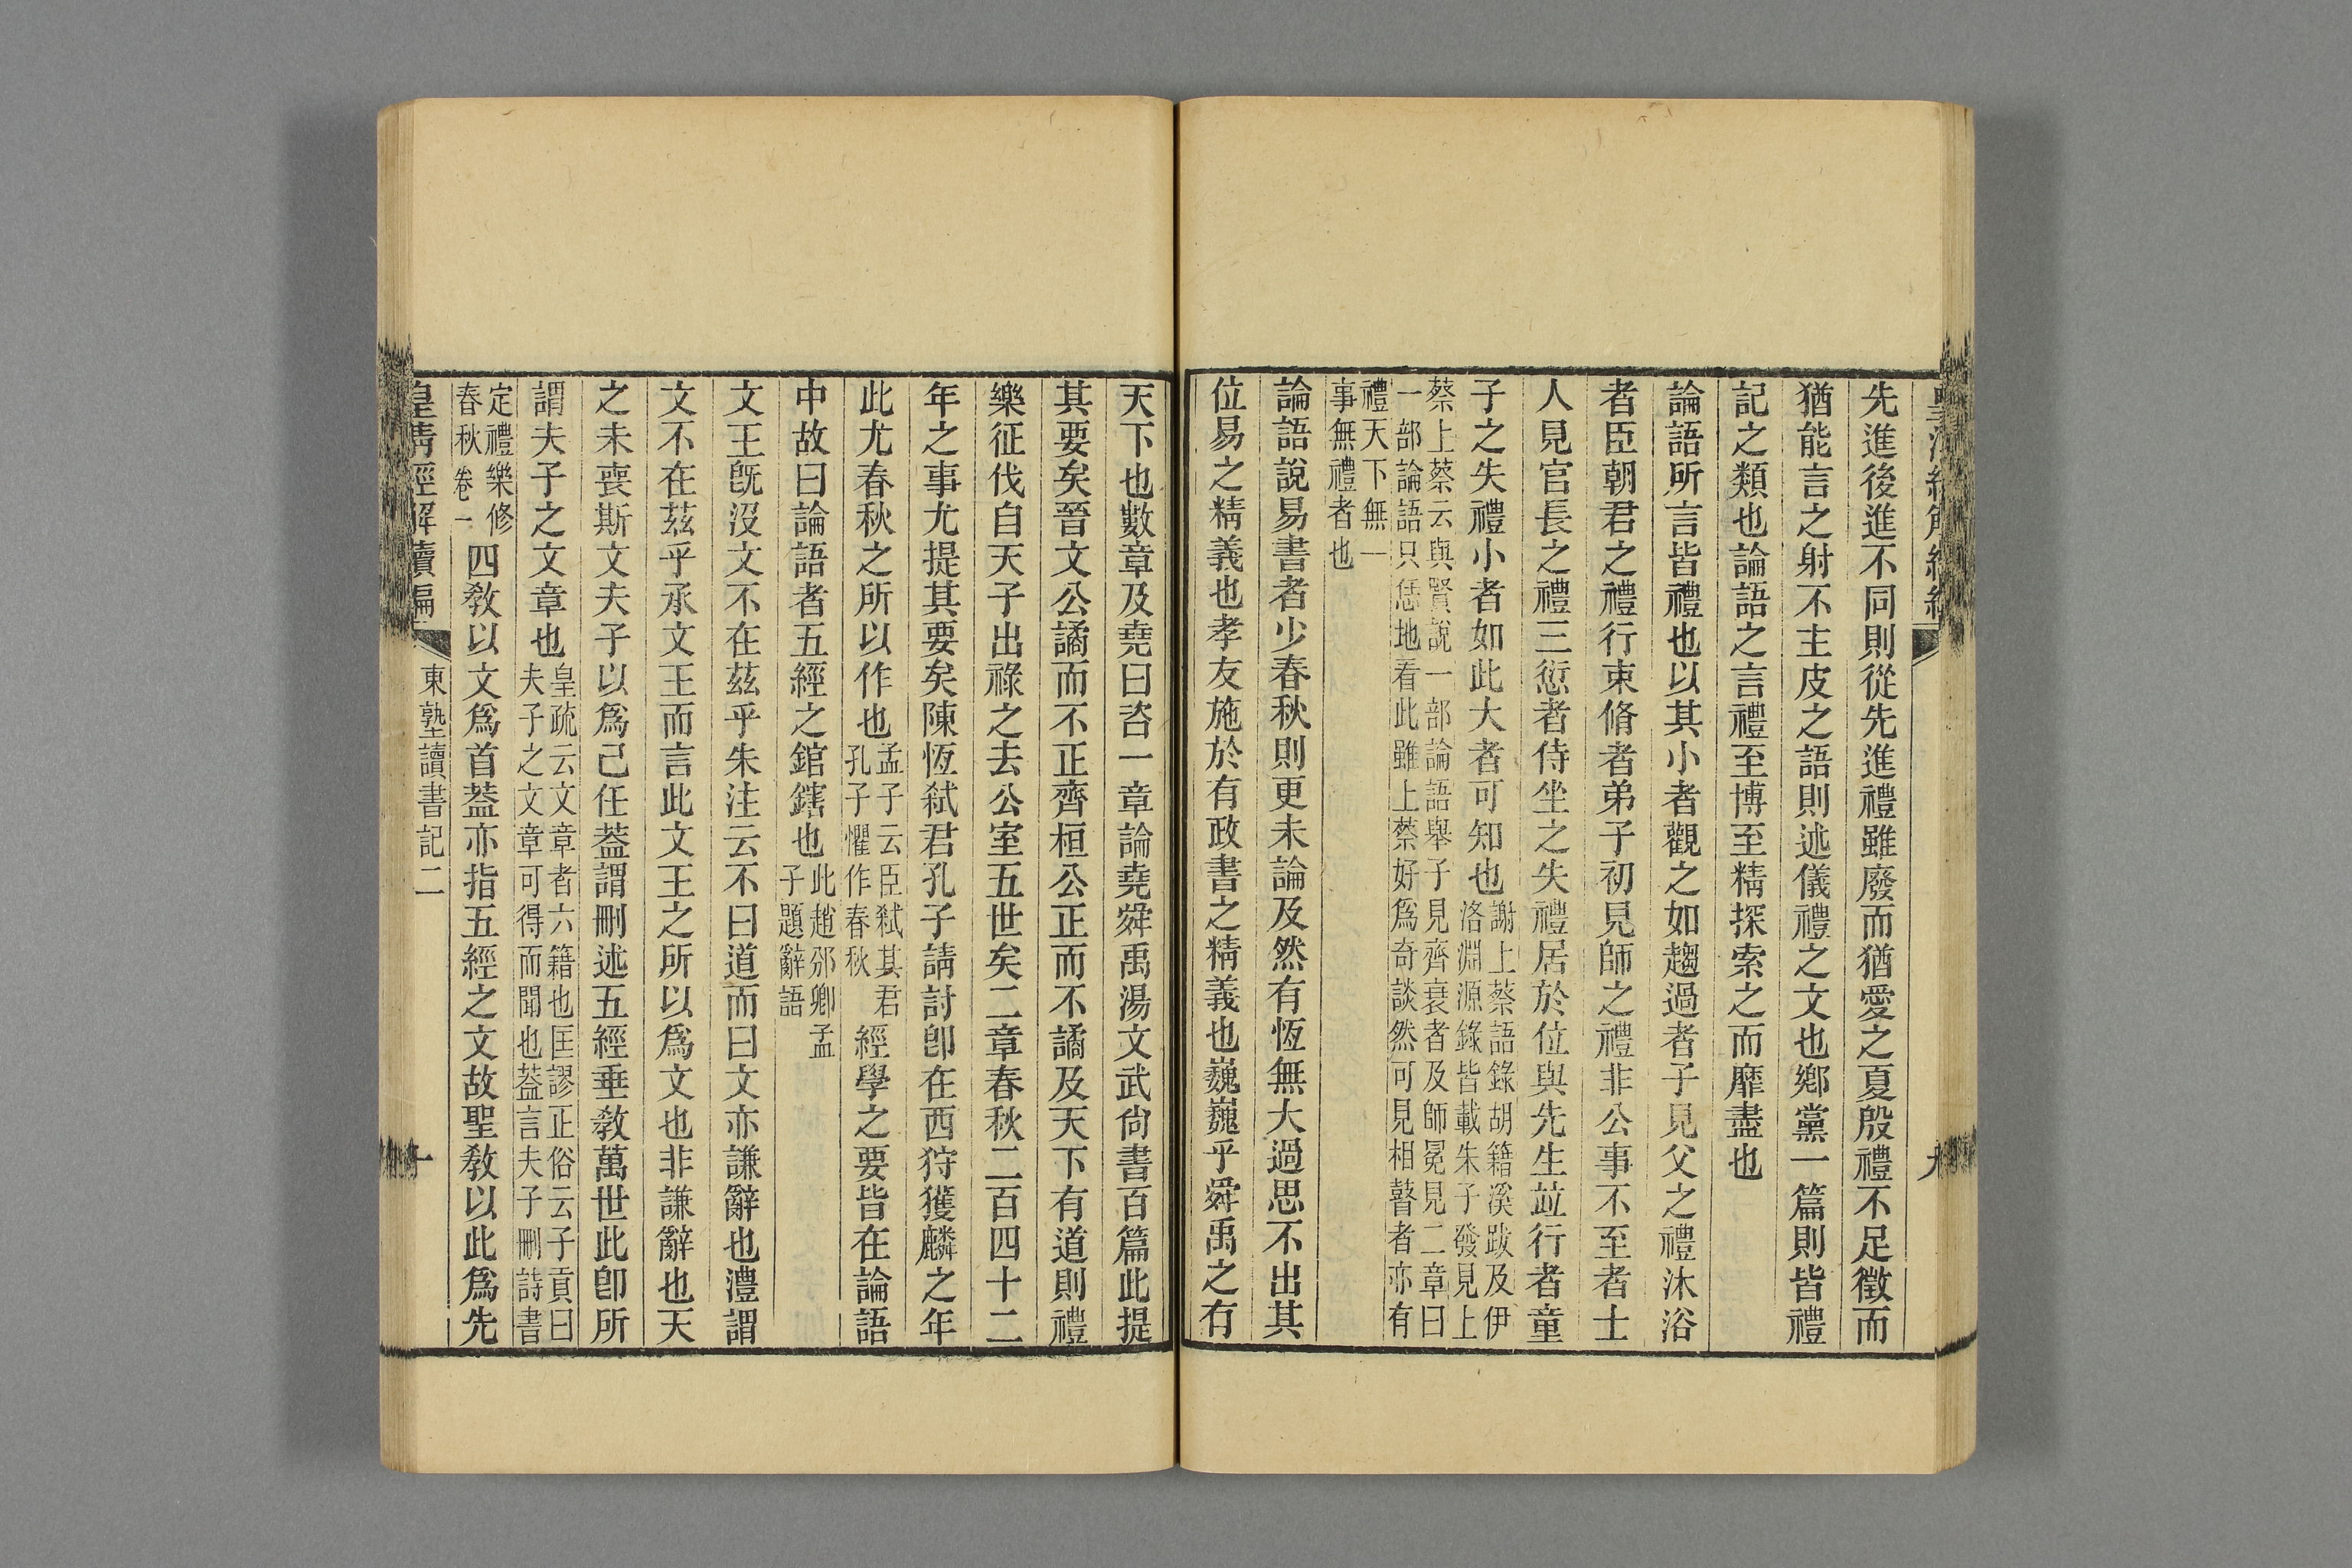 先進後進不同則從先進禮雖廢而猶愛之夏殷禮不足徵而
猶能言之射不主皮之語則述儀禮之文也鄉黨一篇則皆禮
記之類也論語之言禮至博至精探索之而靡盡也
論語所言皆禮也以其小者觀之如趨過者子見父之禮沐浴
者臣朝君之禮行束脩者弟子初見師之禮非公事不至者士
人見官長之禮三愆者侍坐之失禮居於位與先生並行者童
子之失禮小者如此大者可知也
謝上蔡語錄胡籍溪跋及伊
洛淵源錄皆載朱子發見上
蔡上蔡云與賢說一部論語舉子見齊衰者及師冕見二章曰
一部論語只恁地看此雖上蔡好爲奇談然可見相瞽者亦有
禮天下無一
事無禮者也
論語說易書者少春秋則更未論及然有恆無大過思不出其
位易之精義也孝友施於有政書之精義也巍巍乎舜禹之有
九
天下也數章及堯曰咨一章論堯舜禹湯文武尙書百篇此提
其要矣晉文公譎而不正齊桓公正而不譎及天下有道則禮
樂征伐自天子出祿之去公室五世矣二章春秋二百四十二
年之事尤提其要矣陳恆弑君孔子請討卽在西狩獲麟之年
此尤春秋之所以作也
孟子云臣弑其君
孔子懼作春秋
經學之要皆在論語
中故曰論語者五經之錧鎋也
此趙邠卿孟
子題辭語
文王旣沒文不在茲乎朱注云不曰道而曰文亦謙辭也澧謂
文不在茲乎承文王而言此文王之所以爲文也非謙辭也天
之未喪斯文夫子以爲己任葢謂刪述五經垂敎萬世此卽所
謂夫子之文章也
皇疏云文章者六籍也匡謬正俗云子貢曰
夫子之文章可得而聞也葢言夫子刪詩書
定禮樂修
春秋卷一
四敎以文爲首葢亦指五經之文故聖敎以此爲先
皇淸經解續編
東塾讀書記二
十